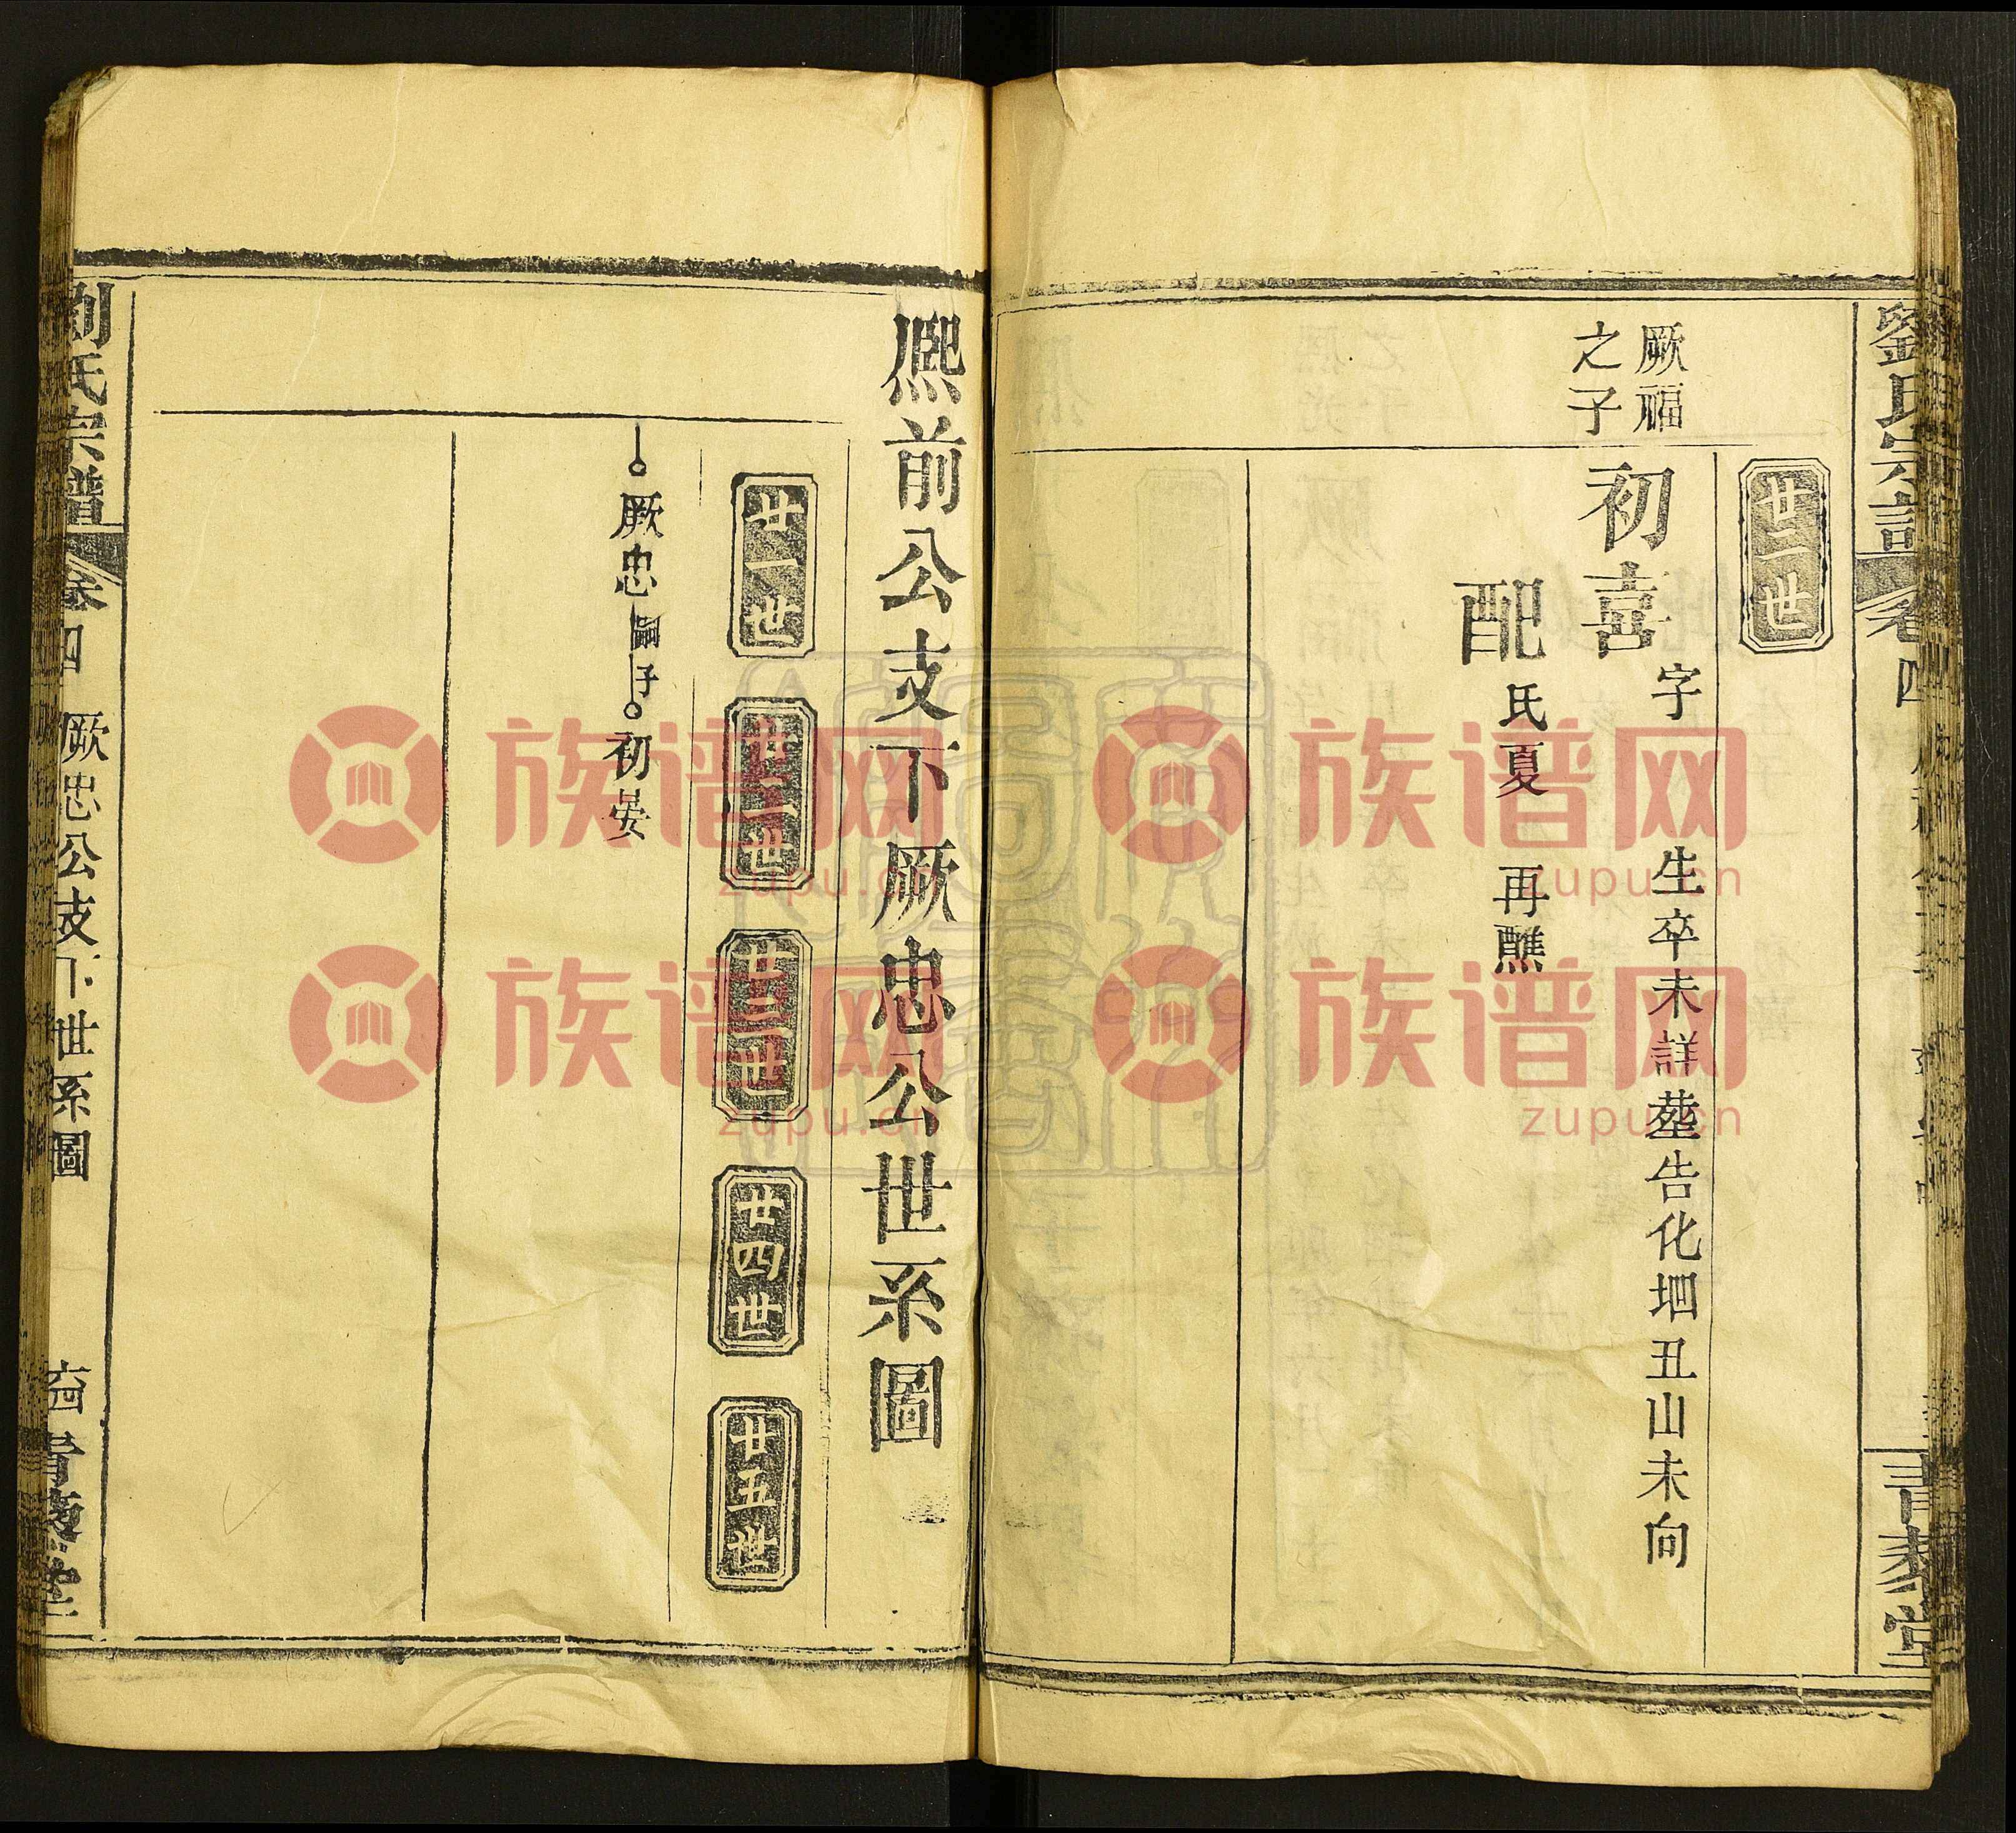 劉氏宗譜
卷四
青藜堂
廿二世
厥福
之子
初喜
字 生卒未詳塟告化垇丑山未向
配
氏夏 再醮
熈前公支下厥忠公世系圖
廿一世
廿二世
廿三世
廿四世
廿五世
厥忠
嗣子
初晏
劉氏宗譜
卷四
厥忠公支下世系圖
族谱网
zupu.cn
族谱网
zupu.cn
族谱网
zupu.cn
族谱网
zupu.cn